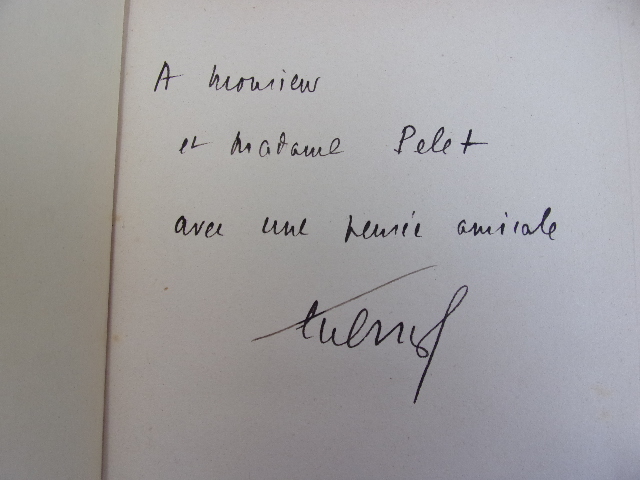 A Monsieur
et Madame Pelet
avec une pensée amicale